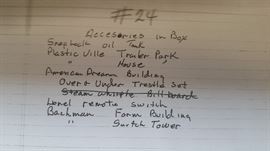 #24
Accesories in Box
Snaptrack oil Tank
Plastic Ville Trailer Park
" House
American Dream Building
Over & Under Trestle set
Steam whistle Bill board
Lionel remote switch
Bachman Farm Building
" Switch Tower